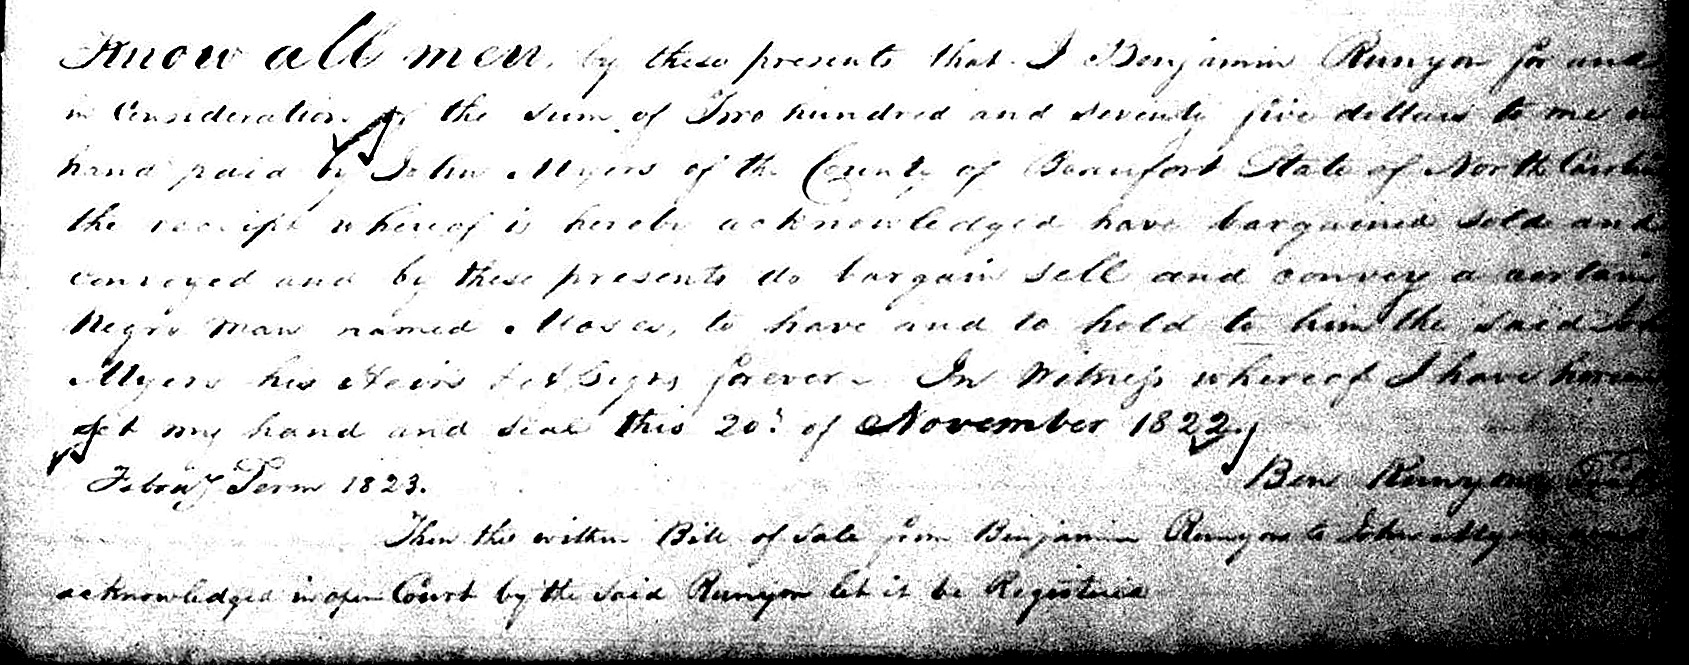 Know all men, by these presents that I Benjamin Runyon for and
in Consideration of the sum of Two hundred and seventy five dollars to me in
hand paid by John Myers of the County of Beaufort State of North Carolina
the receipt whereof is hereby acknowledged have bargained sold and
conveyed and by these presents do bargain sell and convey a certain
Negro man named Moses, to have and to hold to him the said John
Myers his Heirs & Assigns forever. In Witness whereof I have hereunto
set my hand and seal this 20th of November 1822.
Ben Runyon Seal
Febrary Term 1823.
Then the within Bill of Sale from Benjamin Runyon to John Myers was
acknowledged in open Court by the said Runyon let it be Registered